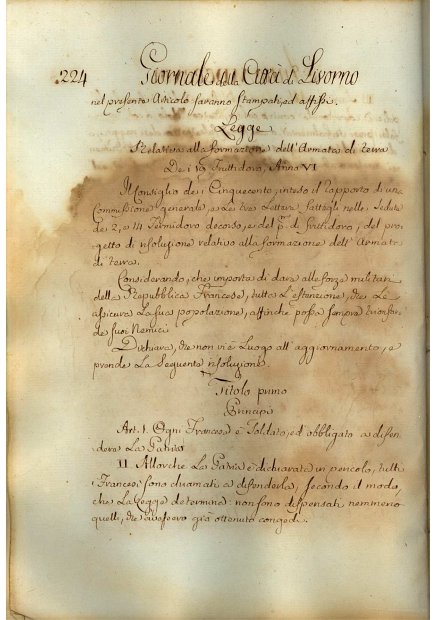 224 Giornale della Città di Livorno
nel presente Articolo saranno stampati, ed affissi.
Legge
Relativa alla formazione dell'Armata di terra
De' 19 Fruttidoro, Anno VI
Il Consiglio de i Cinquecento, inteso il rapporto di una
Commissione generale, e Le tre Letture fattegli nelle Sedute
de 2, e 14 Termidoro decorso, e del p.° di fruttidoro, del pro-
getto di risoluzione relativo alla formazione dell'Armata
di terra.
Considerando, che importa di dare alla forza militare
della Repubblica Francese, tutta L'estenzione, che Le
assicura La sua popolazione, affinche possa sempre trionfare
de suoi Nemici
Dichiara, che non vi è Luogo all'aggiornamento, e
prende La Seguente risoluzione.
Titolo primo
Principj
Art. I. Ogni Francese è Soldato, ed obbligato a difen-
dere La Patria
II. Allorche La Patria è dichiarata in pericolo, tutti
i Francesi sono chiamati a difenderla, secondo il modo,
che La Legge determina: non sono dispensati nemmeno
quelli, che avessero già ottenuto congedi.